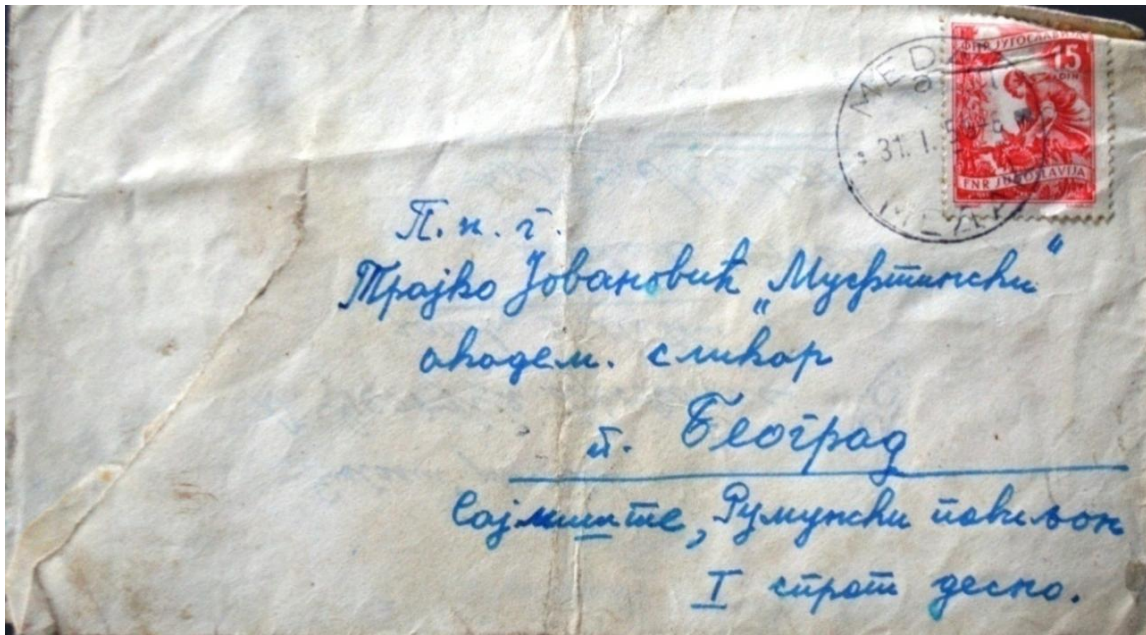 ФНР ЈУГОСЛАВИЈА
15
DIN
FNR JUGOSLAVIJA
31. I.
П. н. г.
Трајко Јовановић „Мусфтински“
академ. сликар
п. Београд
Сајмиште, Румунски павиљон
I спрат десно.